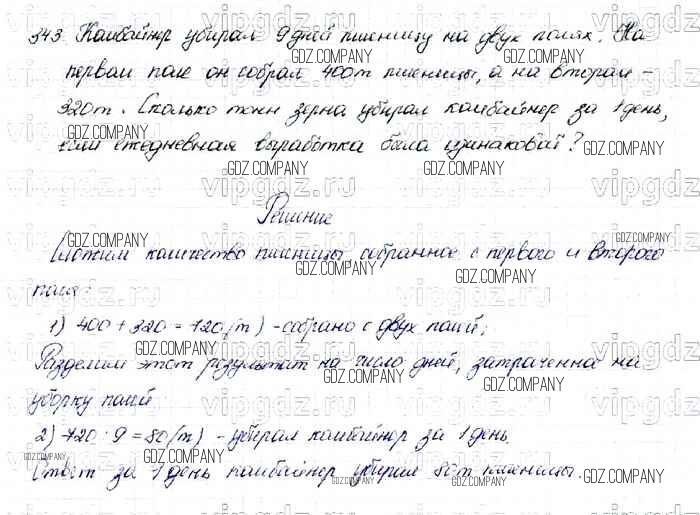 343. Комбайнер убирал 9 дней пшеницу на двух полях. На
первом поле он собрал 400т пшеницы, а на втором –
320т. Сколько тонн зерна убирал комбайнер за 1 день,
если ежедневная выработка была одинаковой?
Решение
Сложим количество пшеницы, собранное с первого и второго
поля:
1) 400 + 320 = 720 (т) - собрано с двух полей;
Разделим этот результат на число дней, затраченна на
уборку полей
2) 720 : 9 = 80 (т) - убирал комбайнер за 1 день.
Ответ за 1 день комбайнер убирал 80т пшеницы.
GDZ.COMPANY
vipgdz.ru